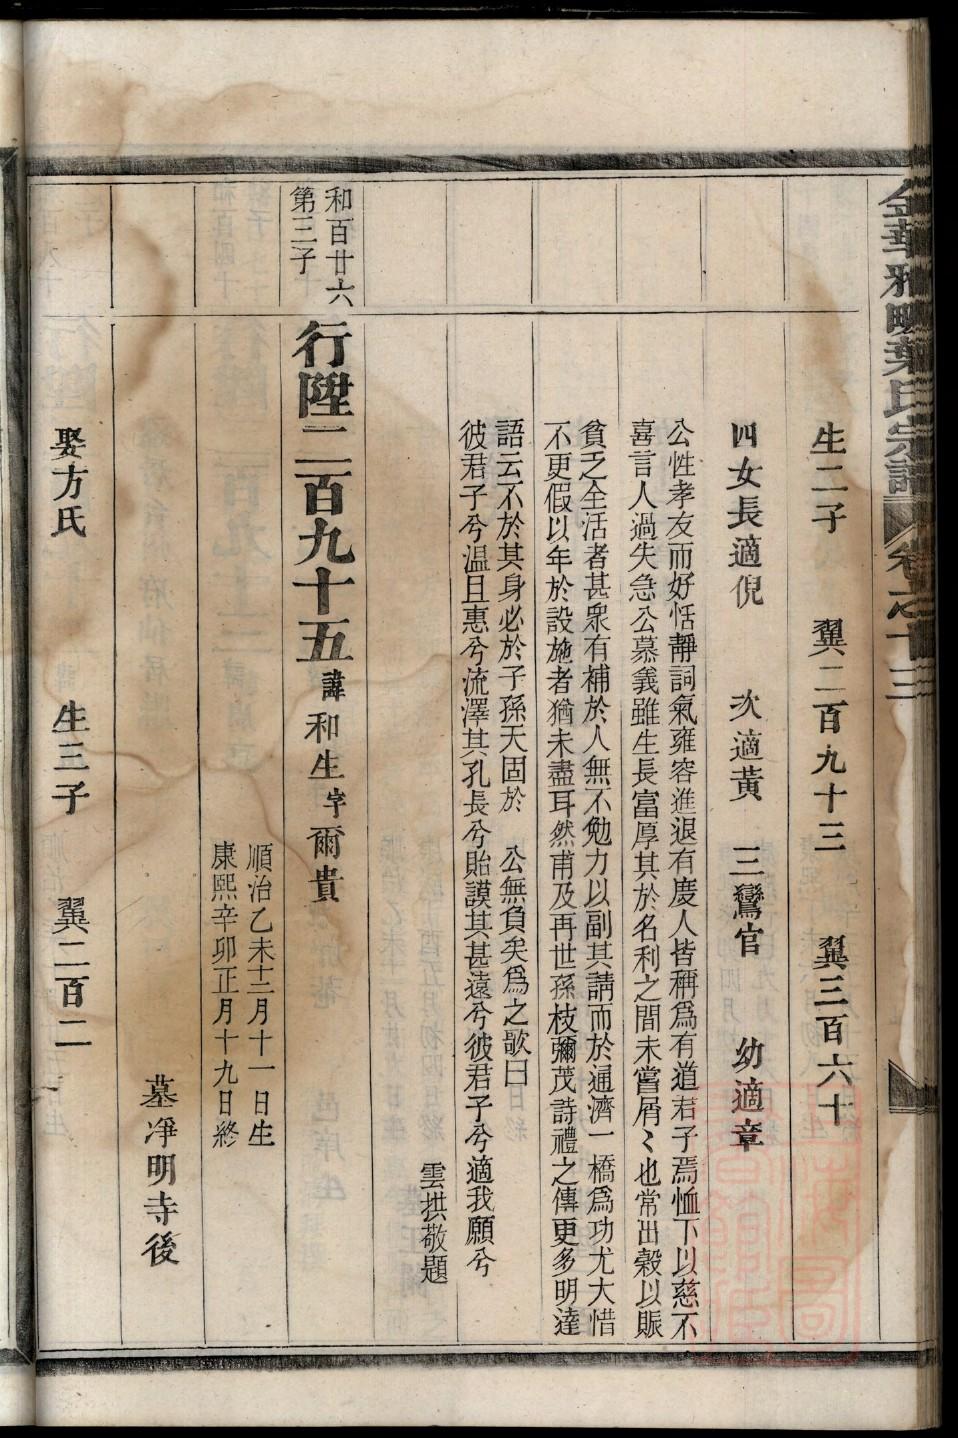 金華雅畈葉氏宗譜 卷之十三
生二子 翼二百九十三 翼三百六十
四女長適倪 次適黄 三鸞官 幼適章
公性孝友而好恬靜詞氣雍容進退有慶人皆稱爲有道君子焉恤下以慈不
喜言人過失急公慕義雖生長富厚其於名利之間未嘗屑〻也常出穀以賑
貧乏全活者甚衆有補於人無不勉力以副其請而於通濟一橋爲功尤大惜
不更假以年於設施者猶未盡耳然甫及再世孫枝彌茂詩禮之傳更多明達
語云不於其身必於子孫天固於 公無負矣爲之歌曰
彼君子兮溫且惠兮流澤其孔長兮貽謨其甚遠兮彼君子兮適我願兮
雲拱敬題
和百廿六
第三子
行陞二百九十五諱和生字爾貴
順治乙未十二月十一日生
康熙辛卯正月十九日終
墓淨明寺後
娶方氏 生三子 翼二百二